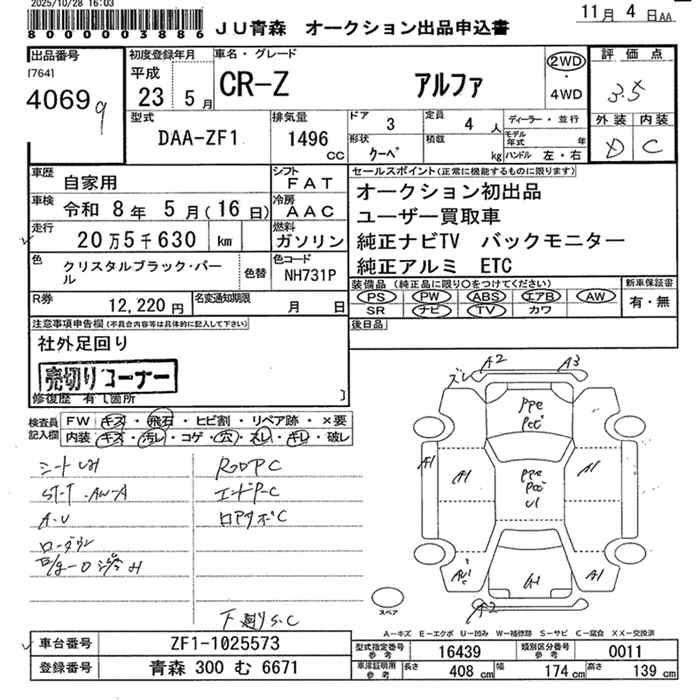 2025/10/28 16:03
80000003886
JU青森 オークション出品申込書
11月 4日AA
出品番号
[764]
4069 9
初度登録年月
平成
23 5月
車名・グレード
CR-Z アルファ
2WD
・
4WD
評価点
3.5
外装 内装
D C
型式
DAA-ZF1
排気量
1496 cc
ドア 3
定員 4人
形状 クーペ
積載 kg
ディーラー・並行
モデル年式 年
ハンドル 左・右
車歴 自家用
車検 令和 8年 5月(16日)
走行 20万5千630 km
色 クリスタルブラック・パール
色替
シフト FAT
冷房 AAC
燃料 ガソリン
色コード NH731P
セールスポイント(正常に機能するものに限ります)
オークション初出品
ユーザー買取車
純正ナビTV バックモニター
純正アルミ ETC
装備品 (純正品に限り○をつけてください)
PS PW ABS エアB AW
SR ナビ TV カワ
新車保証書
有・無
後日品
R券 12,220円
名変通知期限 月 日
注意事項申告欄(不具合内容等は具体的に記入して下さい)
社外足回り
売切りコーナー
修復歴 有 [箇所 ]
検査員記入欄
FW キズ・飛石・ヒビ割・リペア跡・×要
内装 キズ・汚レ・コゲ・穴・スレ・キレ・破レ
A.U
RロアPC
エンドP-C
ロアサポC
下廻りS.C
ズレ A2 A3
A1 A1 A1
A1
A2
スペア
A-キズ E-エクボ U-凹み W-補修跡 S-サビ C-腐食 XX-交換済
車台番号 ZF1-1025573
登録番号 青森 300 む 6671
型式指定番号 参考 16439
類別区分番号 参考 0011
車庫証明用 参考 長さ 408 cm 幅 174 cm 高さ 139 cm